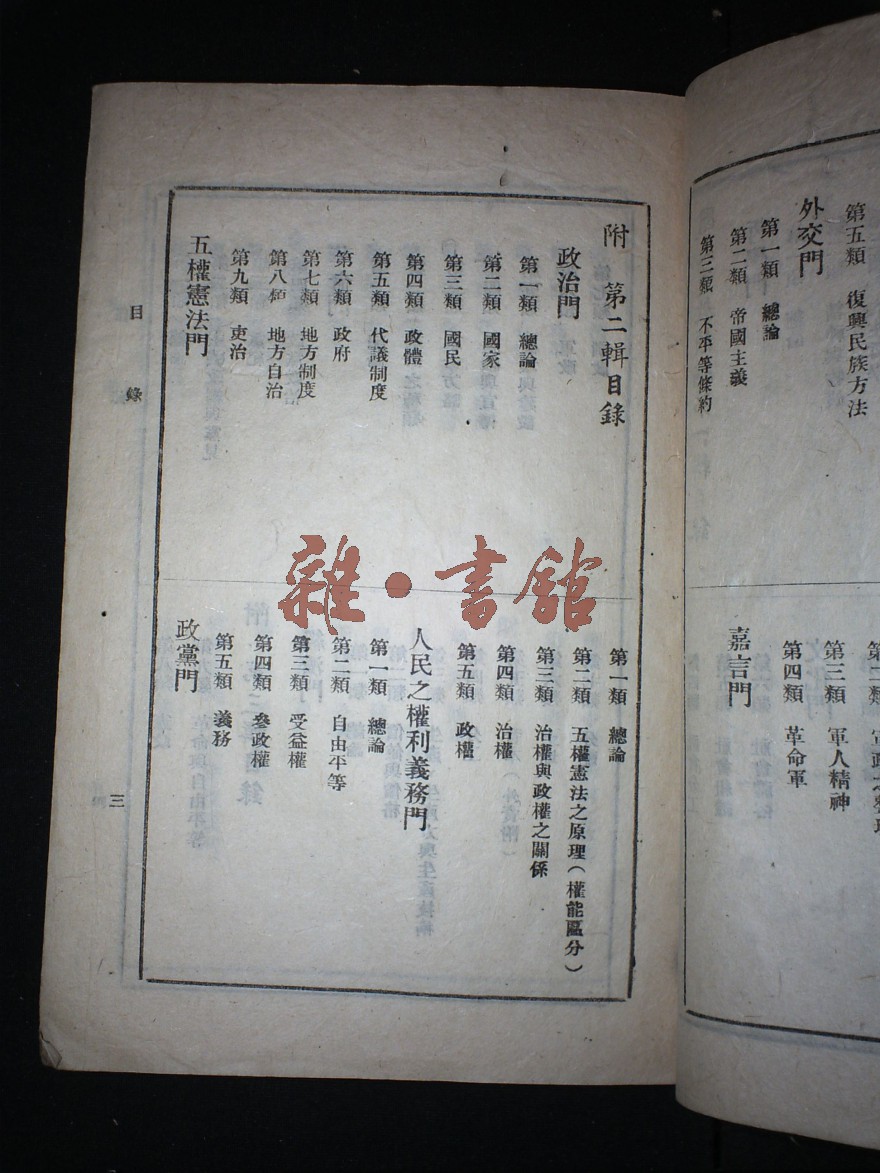 第五類 復興民族方法
外交門
第一類 總論
第二類 帝國主義
第三類 不平等條約
第三類 軍人精神
第四類 革命軍
嘉言門
附 第二輯目錄
政治門
第一類 總論
第二類 國家
第三類 國民
第四類 政體
第五類 代議制度
第六類 政府
第七類 地方制度
第八類 地方自治
第九類 吏治
五權憲法門
第一類 總論
第二類 五權憲法之原理(權能區分)
第三類 治權與政權之關係
第四類 治權
第五類 政權
人民之權利義務門
第一類 總論
第二類 自由平等
第三類 受益權
第四類 參政權
第五類 義務
政黨門
目錄
三
雜·書館